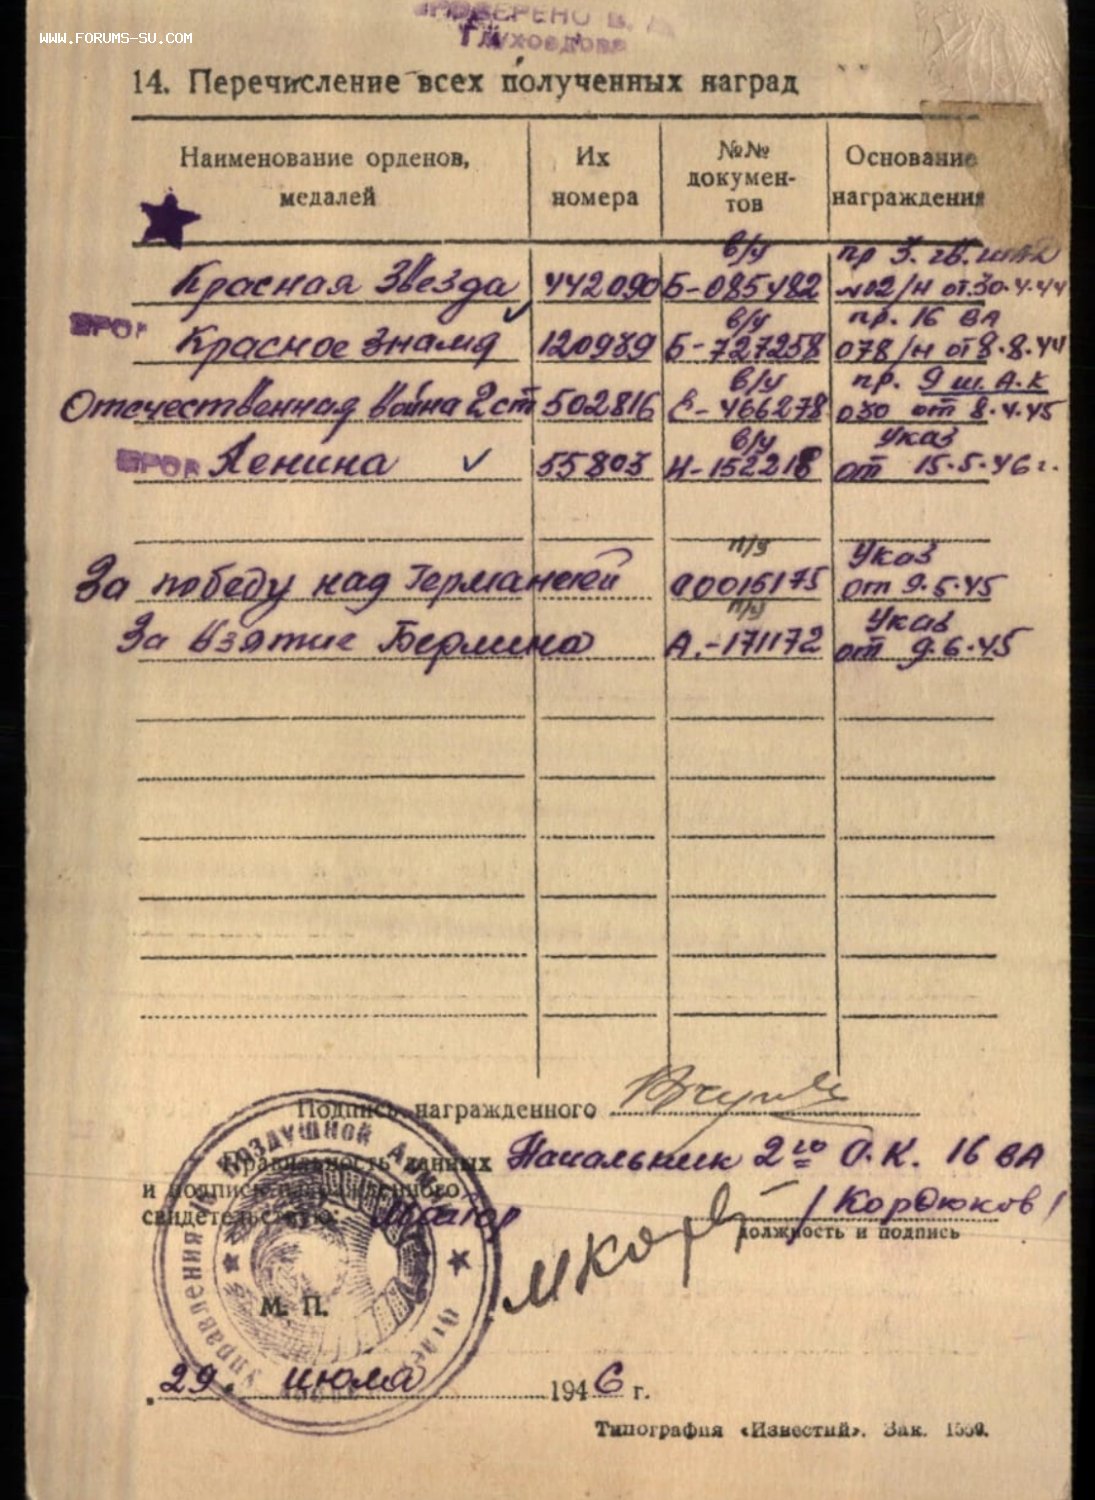 WWW.FORUMS-SU.COM
14. Перечисление всех полученных наград
Наименование орденов, медалей
Их номера
№№ докумен-тов
Основание награждения
в/ч пр 3. гв.
Красная Звезда 442090 Б-085482 №02/н от 30.4.44
в/ч пр. 16 ВА
Красное знамя 120989 Б-727258 078/н от 8.8.44
в/ч пр. 9 ш.А.К
Отечественная война 2 ст 502816 466278 030 от 8.4.45
в/ч Указ
Ленина 55803 от 15.5.46 г.
Указ
За победу над Германией 0015175 от 9.5.45
Указ
За взятие Берлина А.-171172 от 9.6.45
Подпись награжденного
Правильность данных Начальник 2го О.К. 16 ВА
и подпись награжденного
свидетельствую: Майор /Кордюков/
должность и подпись
М. П.
29 июля 1946 г.
Типография «Известий». Зак.